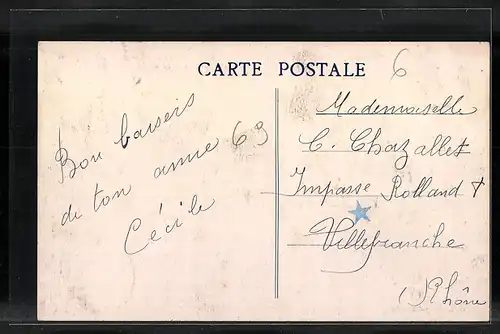 CARTE POSTALE
6
Bon baisers
de ton amie 63
Cécile
Mademoiselle
C. Chazallet
Impasse Rolland
Villefranche
Rhône